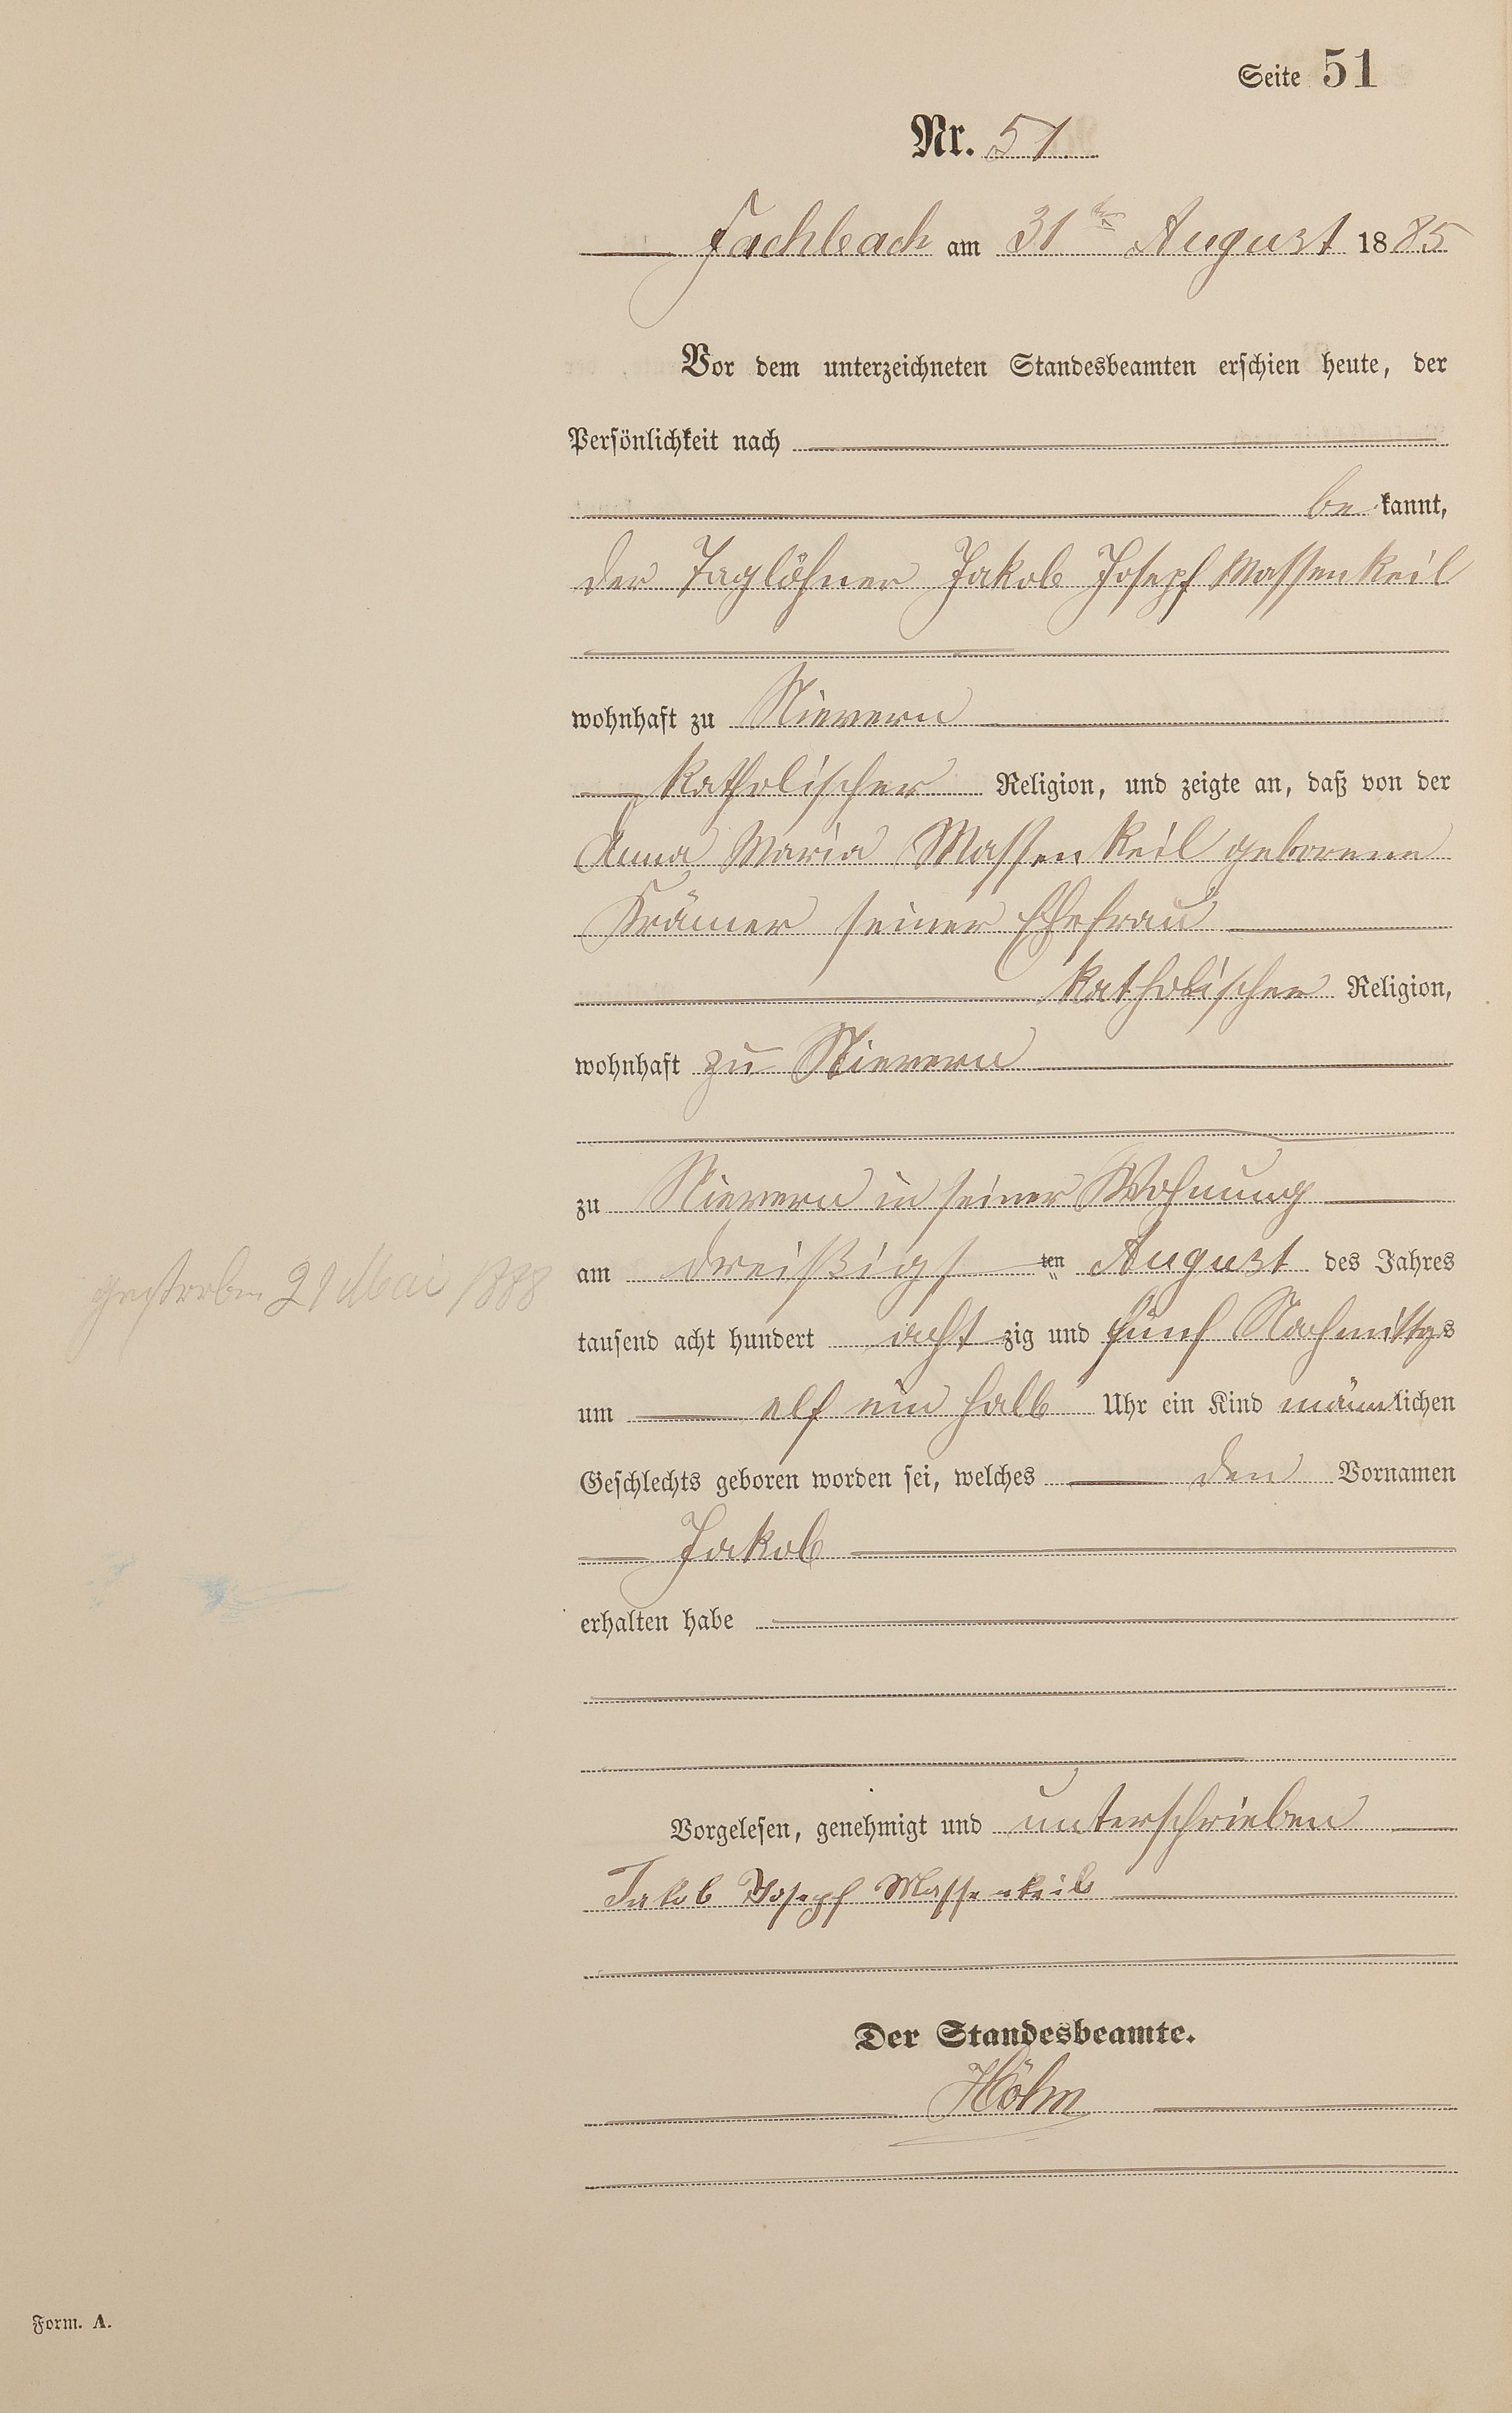 Seite 51
Nr. 51.
Fachbach am 31ten August 1885
Vor dem unterzeichneten Standesbeamten erschien heute, der
Persönlichkeit nach
be kannt,
der Taglöhner Jakob Joseph Massenkeil
wohnhaft zu Nievern
katholischer Religion, und zeigte an, daß von der
Anna Maria Massenkeil geborene
Krämer seiner Ehefrau
katholischer Religion,
wohnhaft zu Nievern
zu Nievern in seiner Wohnung
am dreißigsten August des Jahres
gestorben 21 Mai 1888
tausend acht hundert acht zig und fünf Nachmittgs
um elf ein halb Uhr ein Kind männlichen
Geschlechts geboren worden sei, welches den Vornamen
Jakob
erhalten habe
Vorgelesen, genehmigt und unterschrieben
Jakob Joseph Massenkeil
Der Standesbeamte.
Höhn
Form. A.